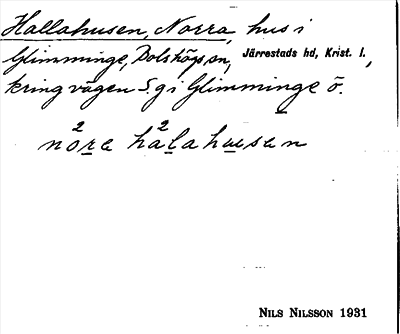 Hallahusen, Norra, hus i
Glimminge, Bolshögs sn, Järrestads hd, Krist. l.,
kring vägen S. g i Glimminge ö.
nore halahusen
NILS NILSSON 1931